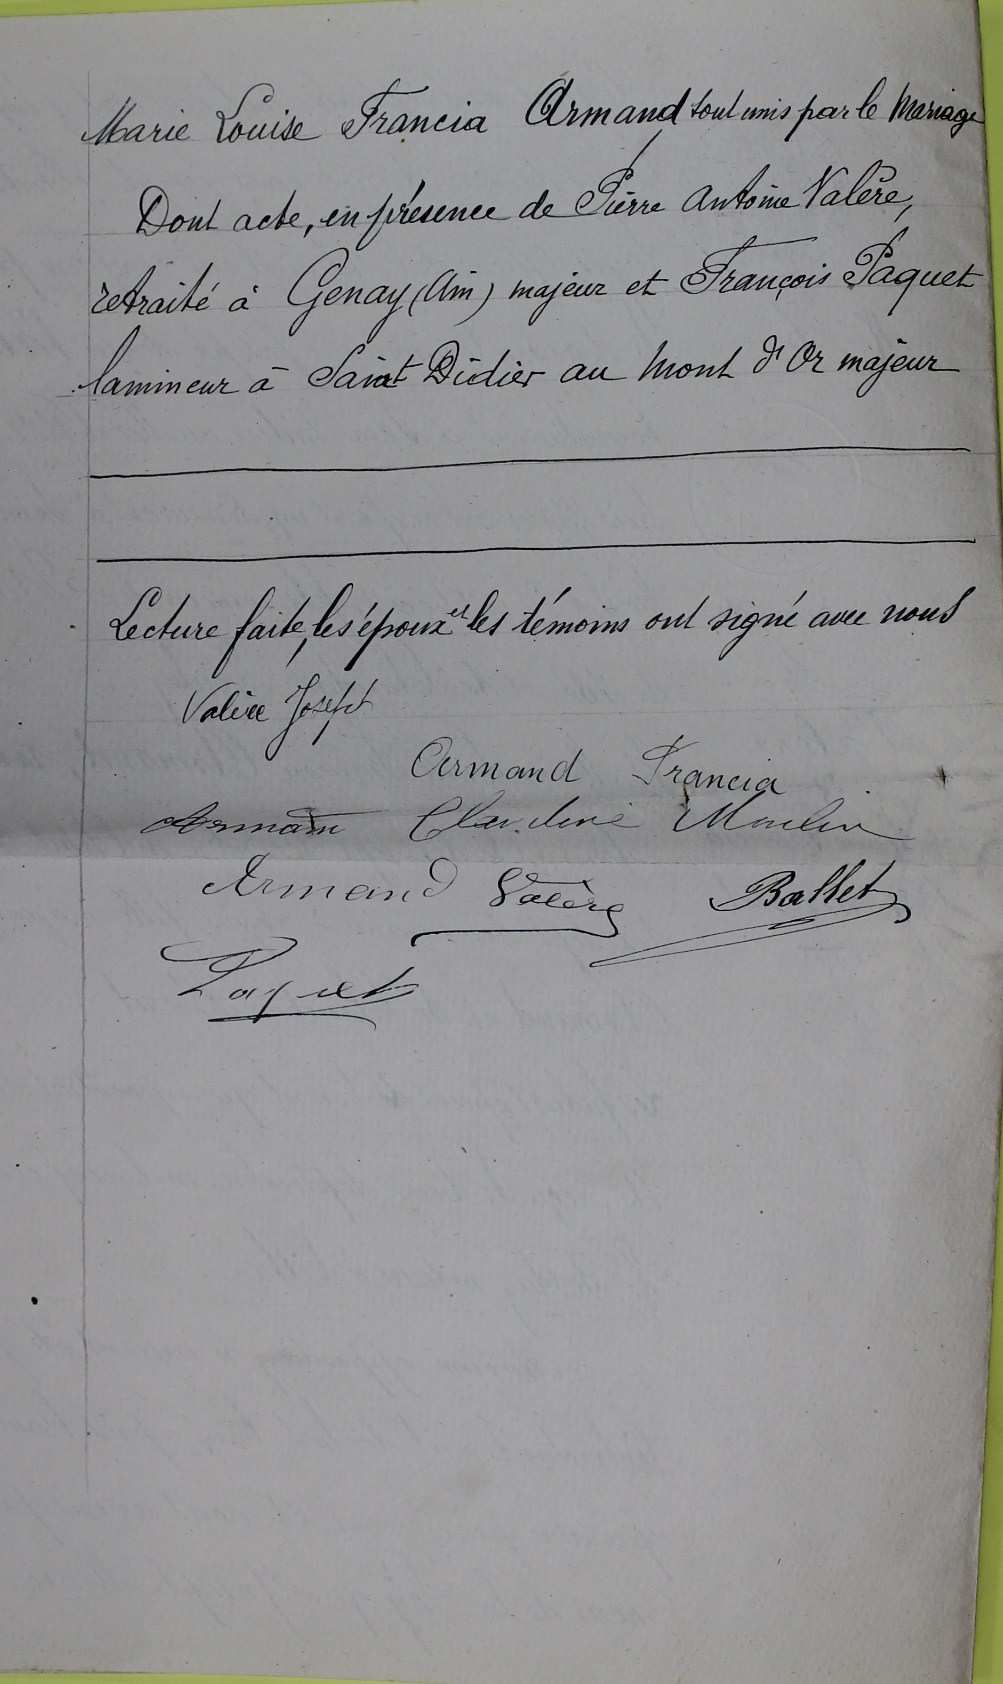 Marie Louise Francia Armand sont unis par le Mariage
Dont acte, en présence de Pierre Antoine Valère,
retraité à Genay (Ain) majeur et François Paquet
lamineur à Saint Didier au Mont d'Or majeur
Lecture faite, les époux et les témoins ont signé avec nous
Valère Joseph
Armand Francia
Armand Claudine Moulin
Armand Valère Ballet
Paquet